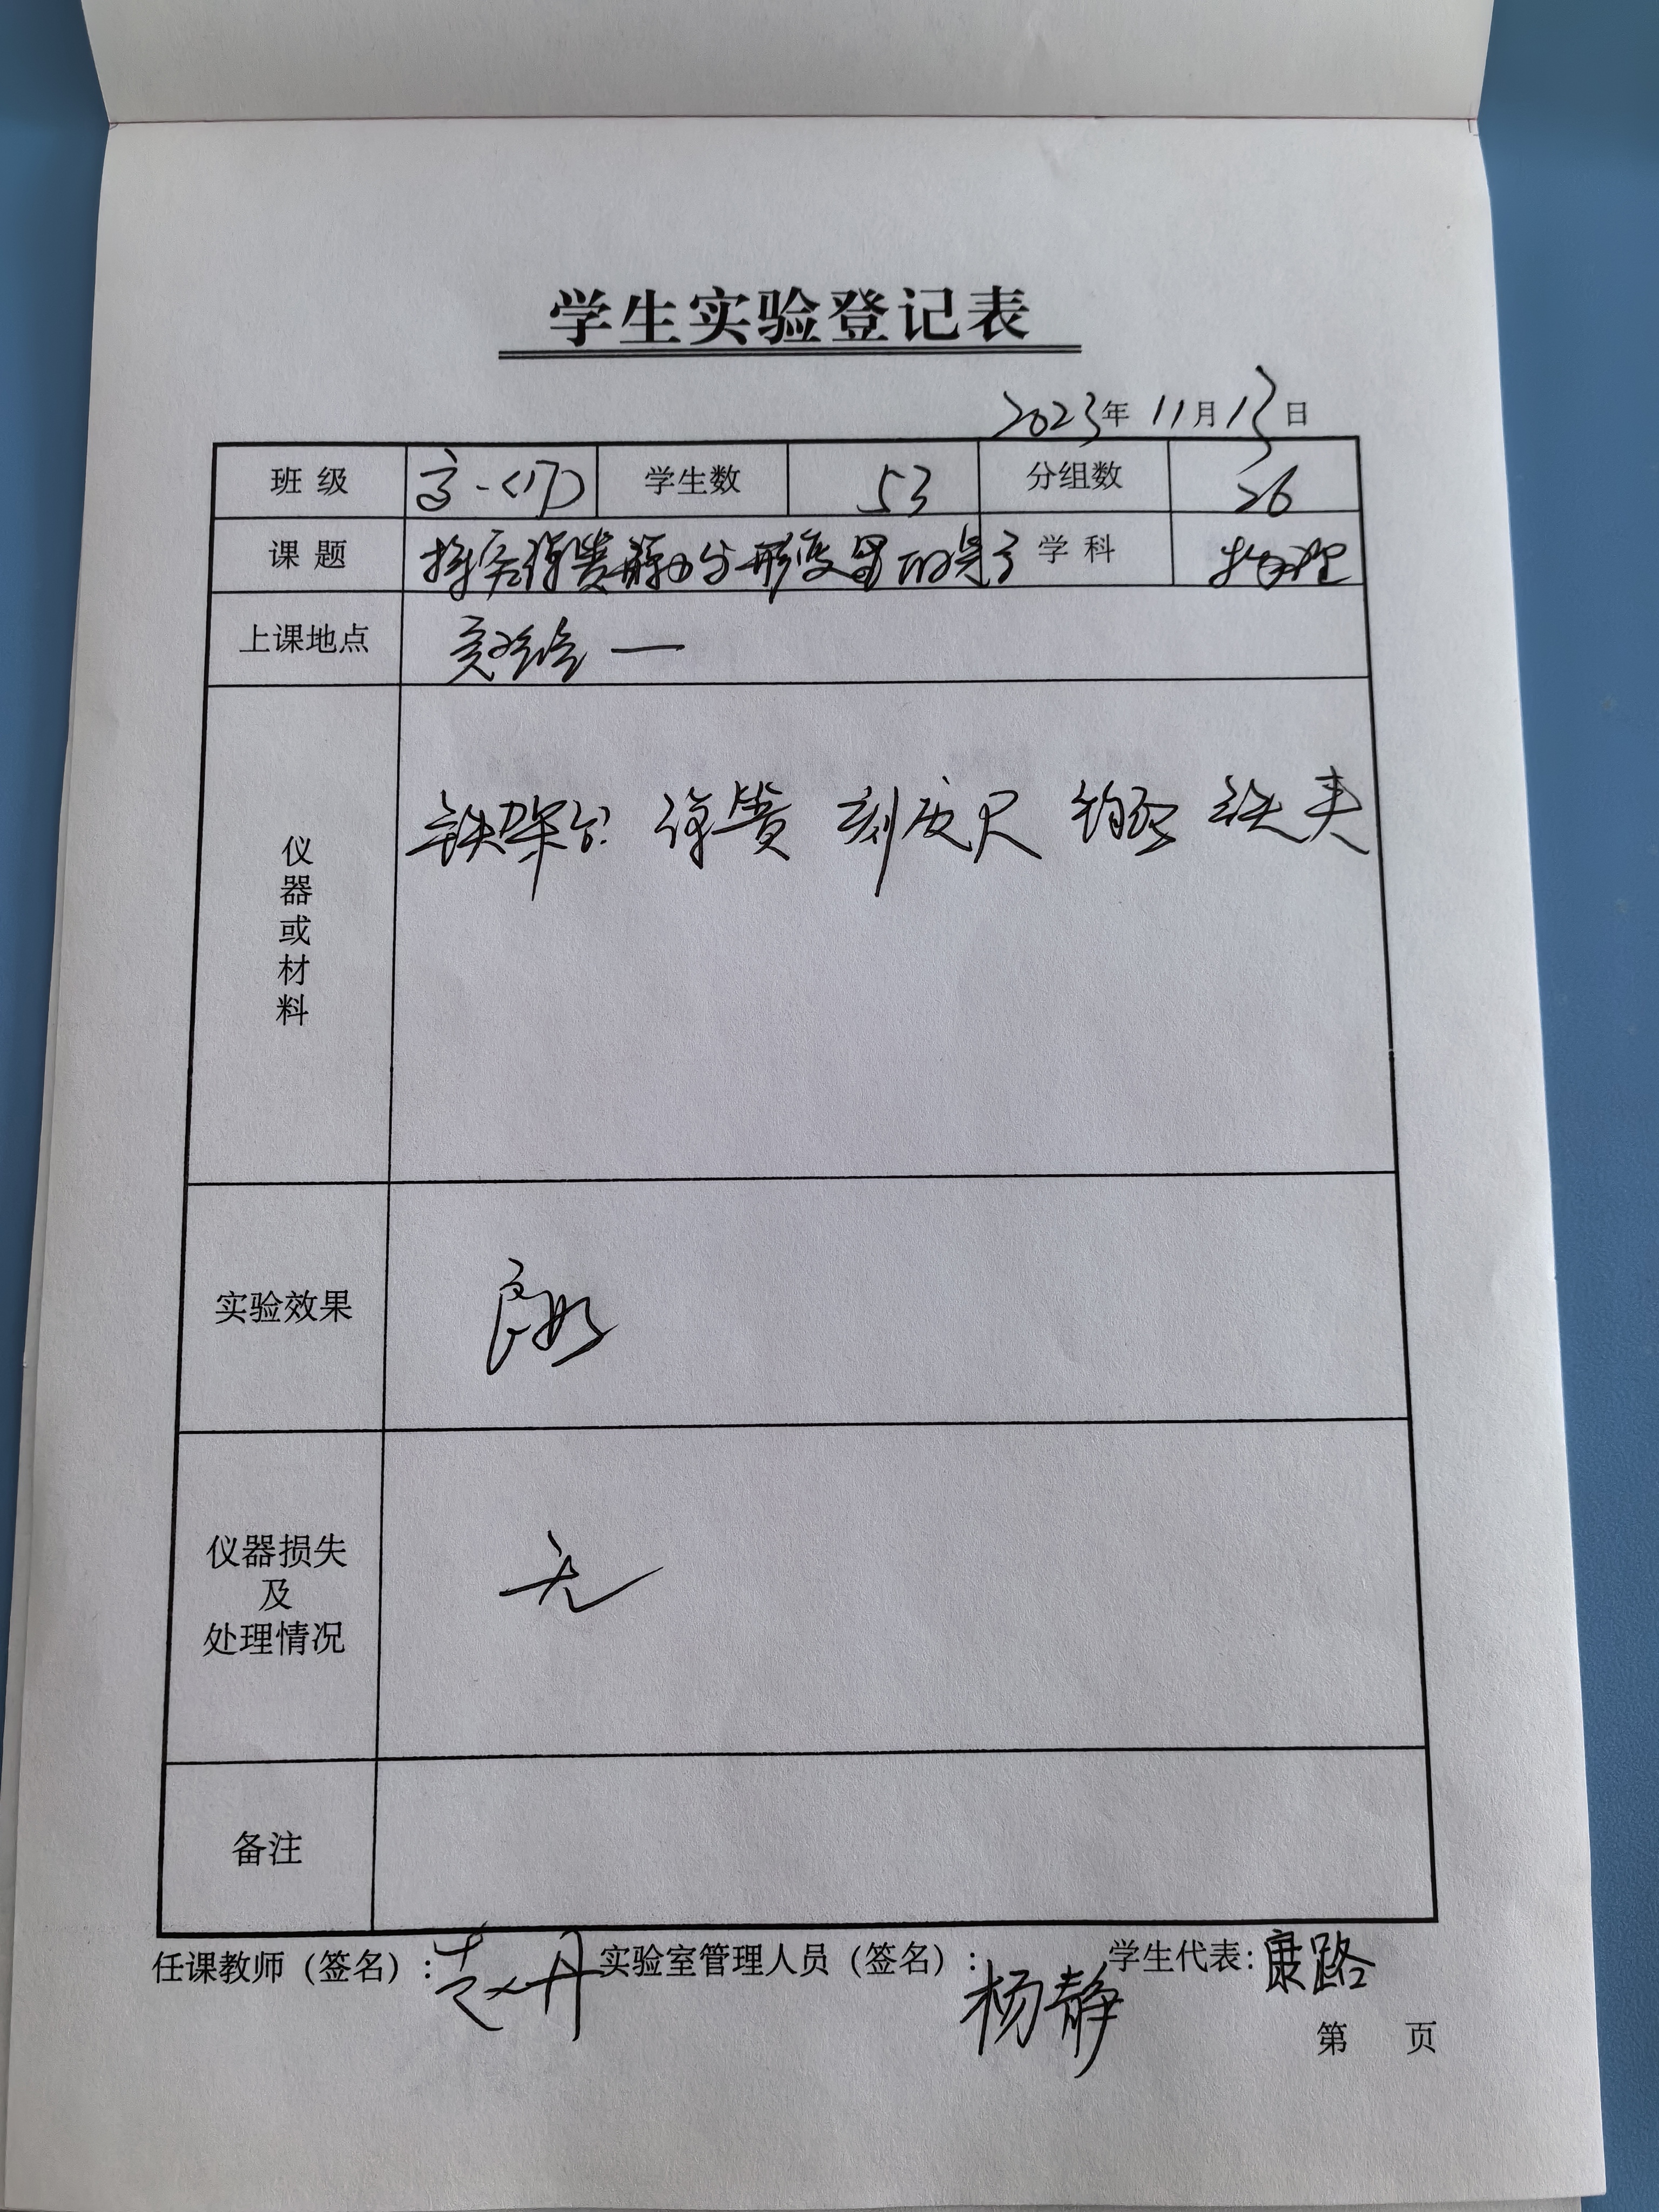 学生实验登记表
2023年 11月13日
班级 高一(17) 学生数 53 分组数 26
课题 探究弹簧弹力与形变量的关系 学科 物理
上课地点 实验室一
仪器或材料 铁架台 弹簧 刻度尺 钩码 铁夹
实验效果 良好
仪器损失及处理情况 无
备注
任课教师（签名）：赵丹 实验室管理人员（签名）：杨静 学生代表：康路
第 页